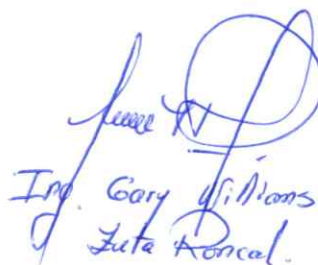 Ing. Gary Williams
Zuta Roncal.